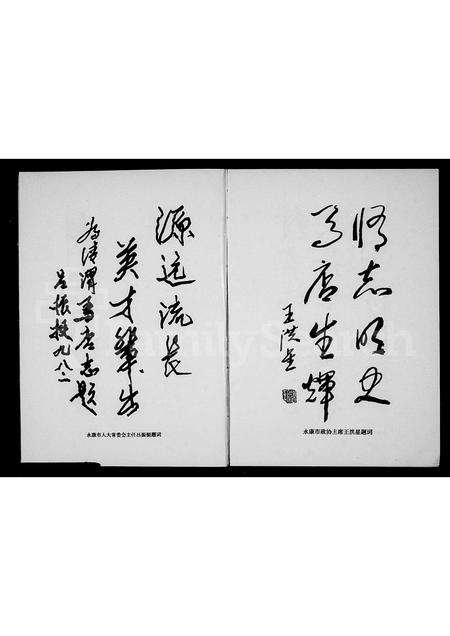 源远流长
英才辈出
为清渭马店志题
吕振 九八.二
永康市人大常委会主任吕振 题词
修志明史
马店生辉
王洪星
永康市政协主席王洪星题词
FamilySearch